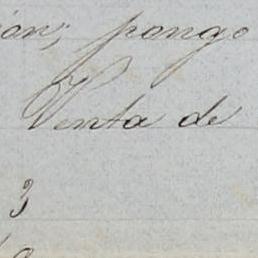 ión; pongo
Venta de
3